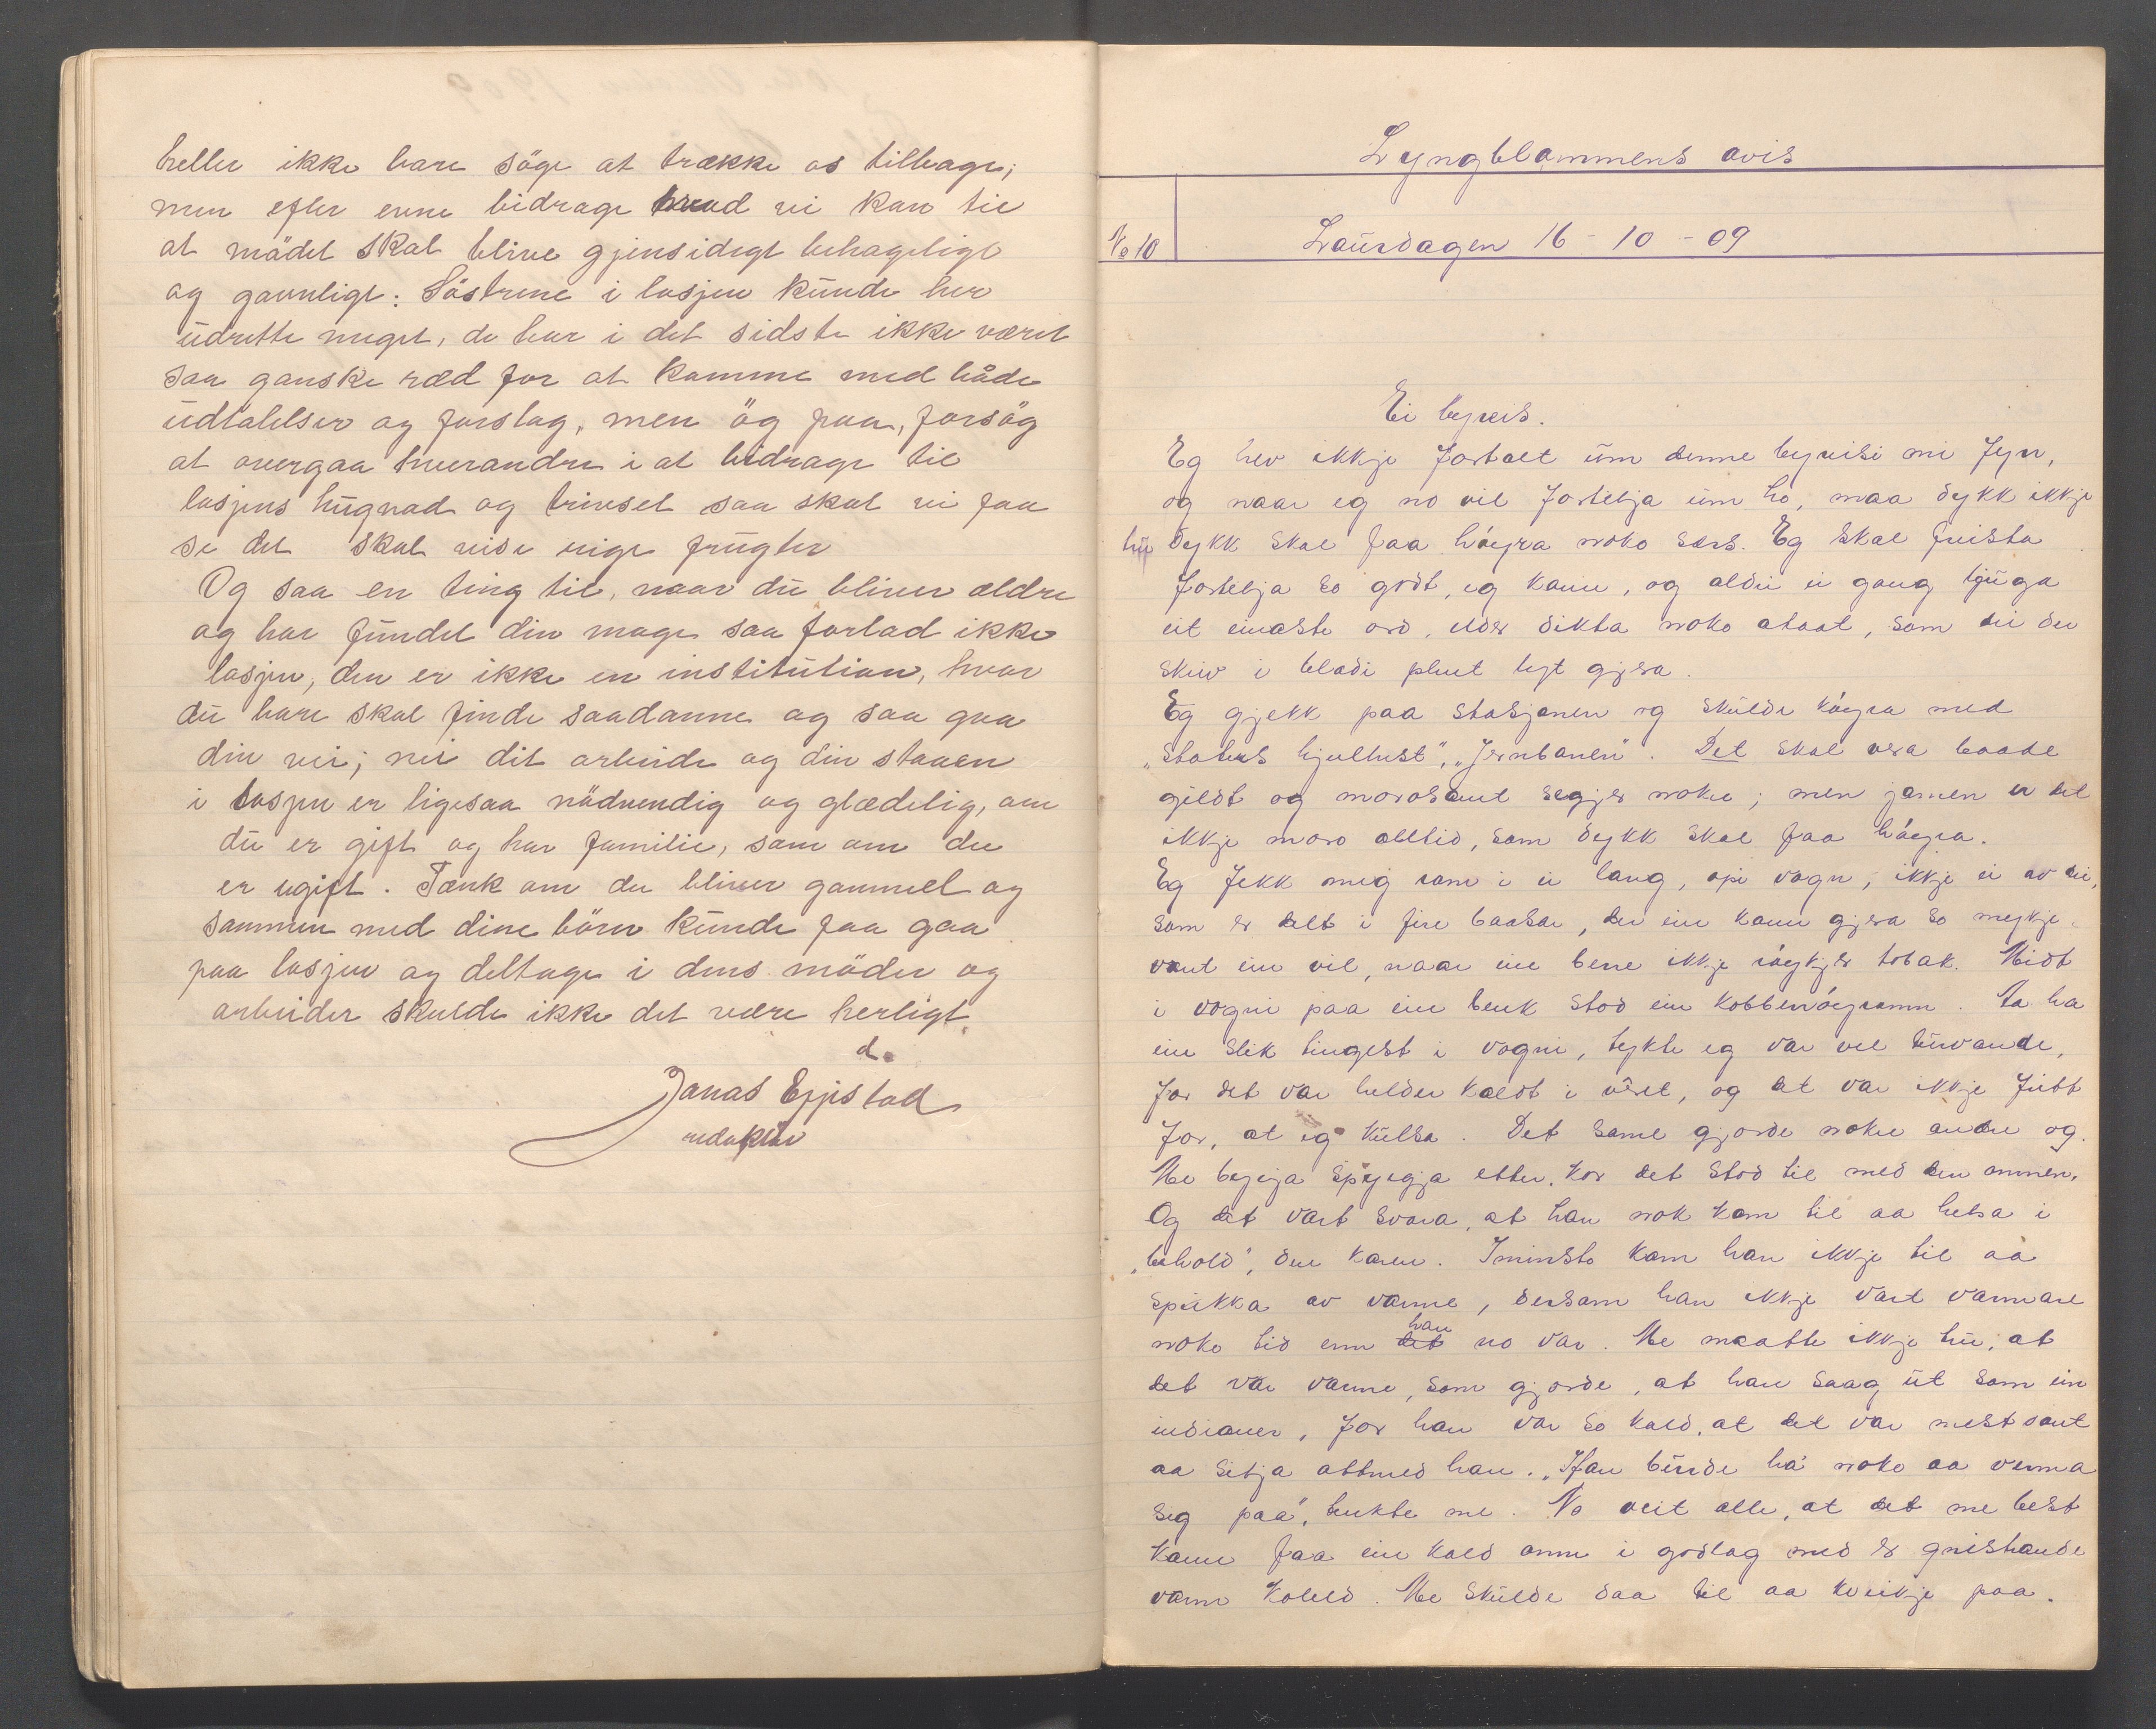 heller ikke bare söge at trække os tilbage;
men efter evne bidrage hvad vi kan til
at mödet skal blive gjensidigt behageligt
og gavnligt. Söstrene i losjen kunde her
udrette meget, de har i det sidste ikke været
saa ganske ræd for at komme med både
udtalelser og forslag, men ög paa, forsög
at overgaa hverandre i at bidrage til
losjens hugnad og trivsel saa skal vi faa
se det skal vise rige frugter
Og saa en ting til, naar du bliver ældre
og har fundet din mage saa forlad ikke
losjen, den er ikke en institution, hvor
du bare skal finde saadanne og saa gaa
din vei; nei dit arbeide og din staaen
i losjen er ligesaa nödvendig og glædelig, om
du er gift og har familie, som om du
er ugift. Tænk om du bliver gammel og
sammen med dine börn kunde faa gaa
paa losjen og deltage i dens möder og
arbeider skulde ikke det være herligt
d.
Jonas Eppistad
redaktör
Lyngblommens avis
No 10
Laurdagen 16-10-09
Ei byreis.
Eg hev ikkje fortalt um denne byreisi mi fyrr,
og naar eg no vil fortelja um ho, maa dykk ikkje
tru dykk skal faa höyra noko særs. Eg skal freista
fortelja so godt, eg kann, og aldri ei gong ljuga
eit einaste ord, elder dikta noko attaat, som dei der
skriv i bladi plent lyt gjera.
Eg gjekk paa stasjonen og skulde köyra med
„statens hjulhest", „Jernbanen". Det skal vera baade
gildt og morosamt segjer nokre; men jamen er det
ikkje moro alltid, som dykk skal faa höyra.
Eg fekk meg rom i ei lang, opi vogn, ikkje ei av dei,
som er delt i fire baasar, der ein kann gjera so mykje
vont ein vil, naar ein berre ikkje röykjer tobak. Midt
i vogni paa ein benk stod ein kobberröyromn. Aa ha
ein slik tingest i vogni, tykte eg var vel turvande,
for det var helder kaldt i veret, og det var ikkje fritt
for, at eg hulsa. Det same gjorde nokre andre og.
Me byrja spyrja etter, kor det stod til med den omnen.
Og det vart svara, at han nok kom til aa helsa i
„behold", den karen. Iminsto kom han ikkje til aa
sprikka av varme, dersom han ikkje vart varmare
noko tid enn han no var. Me maatte ikkje tru, at
det var varme, som gjorde, at han saag ut som ein
indianer, for han var so kald, at det var mest vont
aa sitja attmed han. „Han burde ha noko aa verma
seg paa", tenkte me. No veit alle, at det me best
kann faa ein kald omn i godlag med er gneistrande
varm koleld. Me skulde daa til aa kveikje paa.